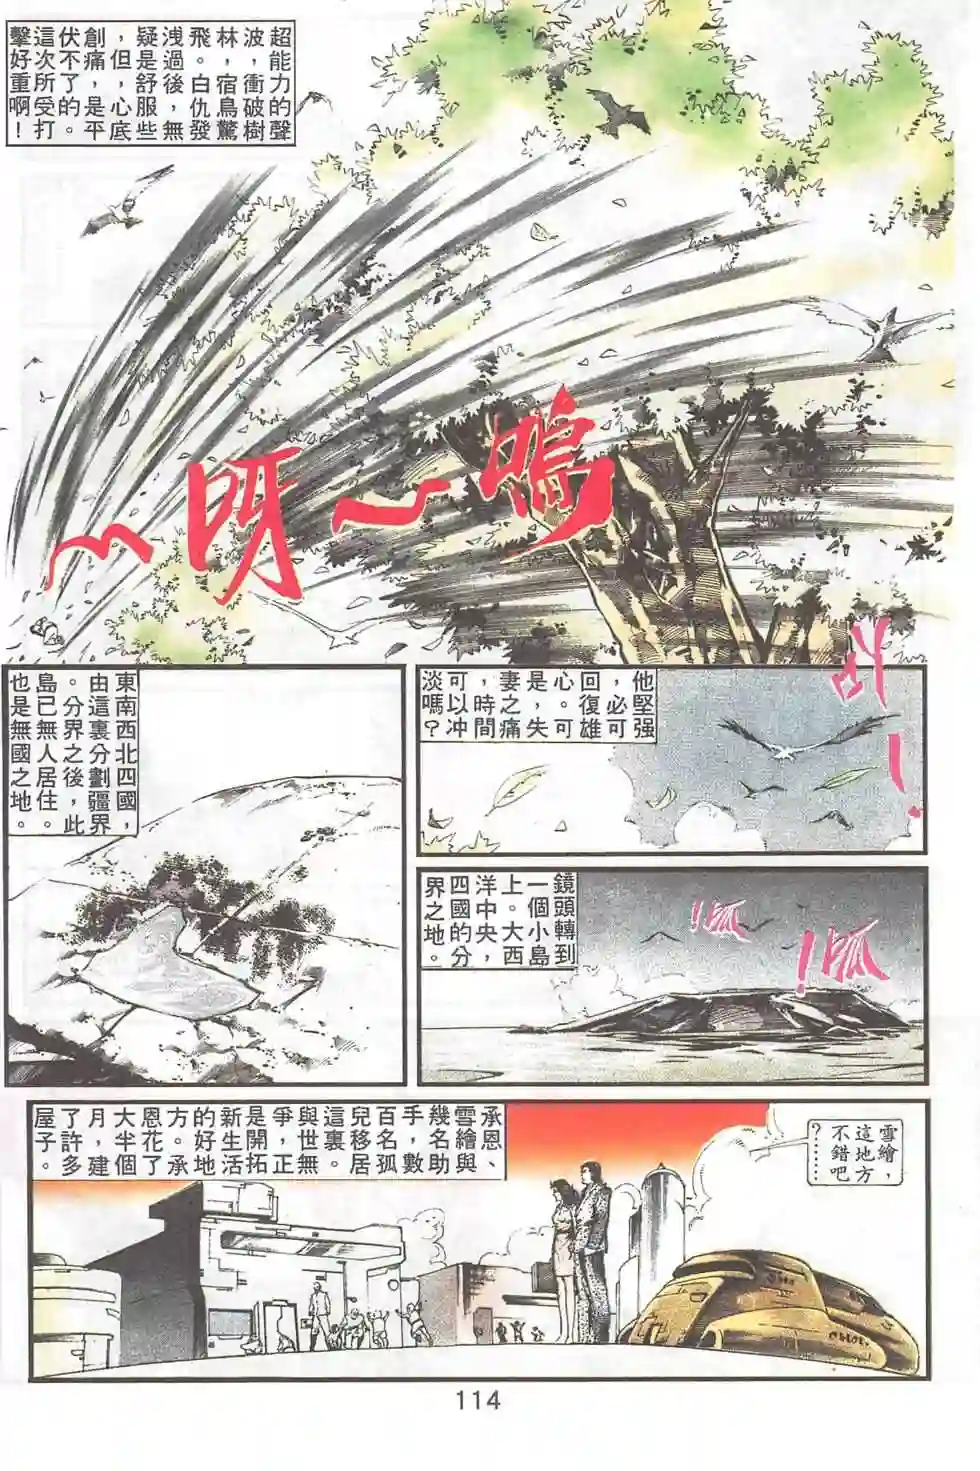 超能力的聲
波，衝破樹
林，宿鳥驚
飛。白仇發
洩過後，無
疑是舒服些
，但，心底
創痛，是平
伏不了的。
這次所受打
擊好重啊！
嗚～呀～
他堅强
，必可
回復雄
心。可
是，失
妻之痛
，時間
可以冲
淡嗎？
鏡頭轉到
一個小島
上。大西
洋中央，
四國的分
界之地。
呱！
呱！
東南西北四國，
由這裏分劃疆界
。分界之後，此
島已無人居住。
也是無國之地。
承恩、
雪繪與
幾名助
手，數
百名孤
兒移居
這裏。
與世無
爭，正
是開拓
新生活
的好地
方。承
恩花了
大半個
月，建
了許多
屋子。
雪繪，
這地方
不錯吧
？……
114